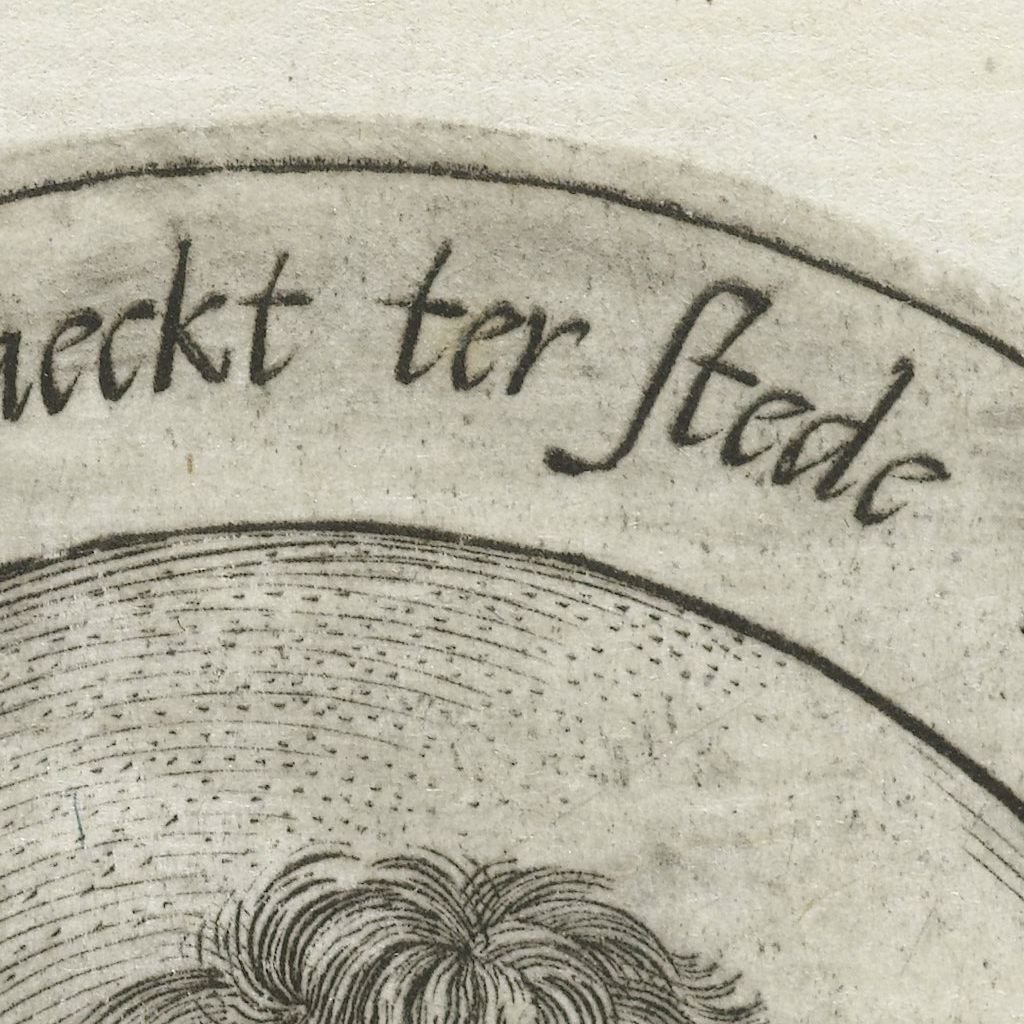 aeckt ter ſtede